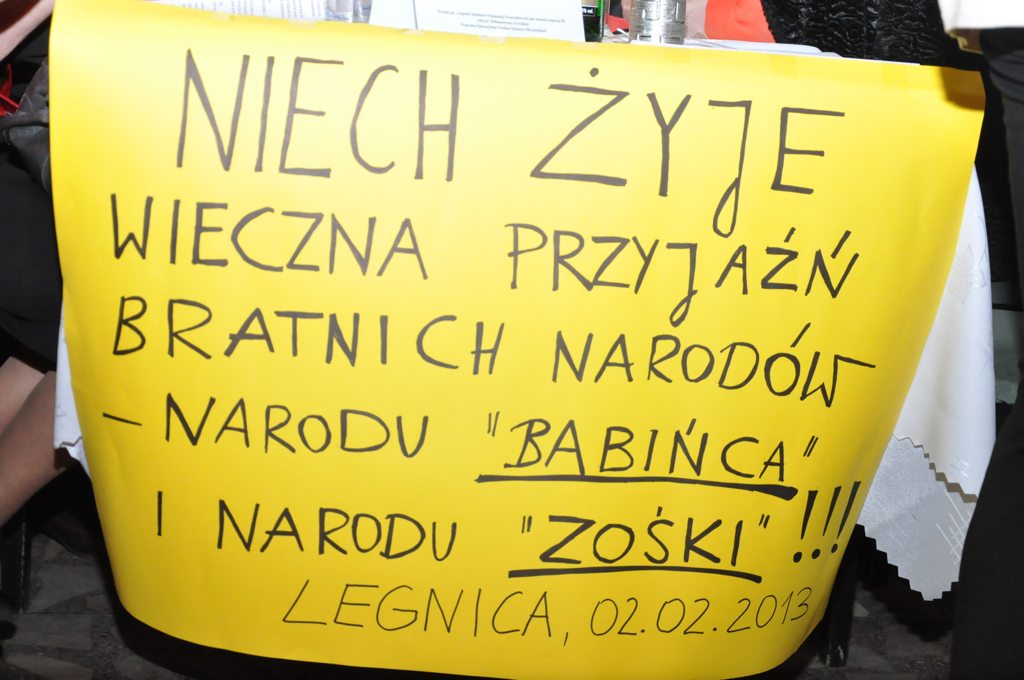 NIECH ŻYJE
WIECZNA PRZYJAŹŃ
BRATNICH NARODÓW
– NARODU "BABIŃCA"
I NARODU "ZOŚKI" !!!
LEGNICA, 02.02.2013